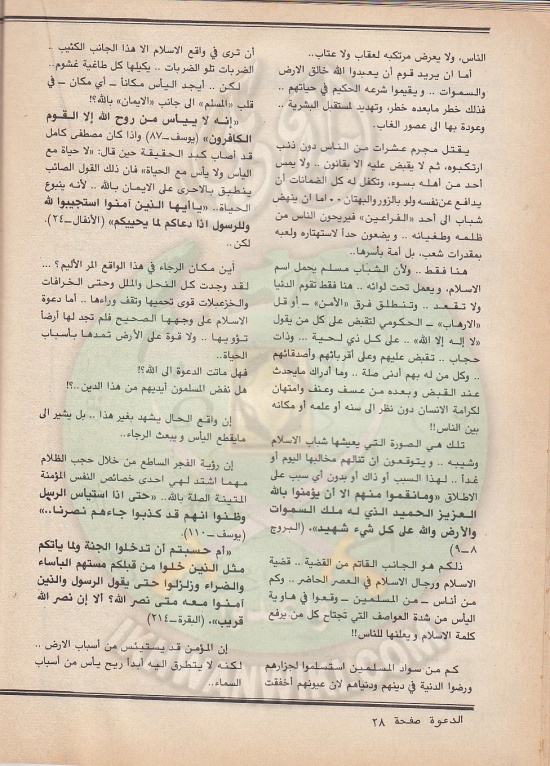 الناس، ولا يعرض مرتكبه لعقاب ولا عتاب..
أما ان يريد قوم أن يعبدوا الله خالق الارض
والسموات .. ويقيموا شرعه الحكيم في حياتهم ..
فذلك خطر مابعده خطر، وتهديد لمستقبل البشرية ..
وعودة بها الى عصور الغاب.
يقتل مجرم عشرات من الناس دون ذنب
ارتكبوه، ثم لا يقبض عليه الا بقانون .. ولا يمس
أحد من أهله بسوء، وتكفل له كل الضمانات أن
يدافع عن نفسه ولو بالزور والبهتان .. أما ان ينهض
شباب الى أحد «الفراعين» فيريحون الناس من
ظلمه وطغيانه .. ويضعون حداً لاستهتاره ولعبه
بمقدرات شعب، بل أمة بأسرها..
هنا فقط .. ولأن الشباب مسلم يحمل اسم
الاسلام، ويعمل تحت لوائه .. هنا فقط تقوم الدنيا
ولا تقعد .. وتنطلق فرق «الأمن» ــ أو قل
«الارهاب» ــ الحكومي لتقبض على كل من يقول
«لا إله إلا الله» .. على كل ذي لحية ... وذات
حجاب .. تقبض عليهم وعلى أقربائهم وأصدقائهم
.. وكل من له بهم أدنى صلة .. وما أدراك مايحدث
عند القبض وبعده من عسف وعنف وامتهان
لكرامة الانسان دون نظر الى سنه أو علمه أو مكانه
بين الناس!!
تلك هي الصورة التي يعيشها شباب الاسلام
وشيبه .. ويتوقعون ان تنالهم مخالبها اليوم أو
غداً .. لهذا السبب أو ذاك أو بدون أي سبب على
الاطلاق «ومانقموا منهم الا أن يؤمنوا بالله
العزيز الحميد الذي له ملك السموات
والأرض والله على كل شيء شهيد».. (البروج
٨ــ٩)
ذلكم هو الجانب القاتم من القضية .. قضية
الاسلام ورجال الاسلام في العصر الحاضر .. وكم
من أناس ــ من المسلمين ــ وقعوا في هاوية
اليأس من شدة العواصف التي تجتاح كل من يرفع
كلمة الاسلام ويعلنها للناس!!
كم من سواد المسلمين استسلموا لجزارهم
ورضوا الدنية في دينهم ودنياهم لان عيونهم أخفقت
أن ترى في واقع الاسلام الا هذا الجانب الكئيب ..
الضربات تلو الضربات .. يكيلها كل طاغية غشوم..
لكن .. أيجد اليأس مكاناً ــ أي مكان ــ في
قلب «المسلم» الى جانب «الايمان» بالله؟!
«إنه لا ييأس من روح الله إلا القوم
الكافرون» (يوسف ــ٨٧) واذا كان مصطفى كامل
قد أصاب كبد الحقيقة حين قال: «لا حياة مع
اليأس ولا يأس مع الحياة» فان ذلك القول الصائب
ينطبق بالاحرى على الايمان بالله .. لأنه ينبوع
الحياة.. «ياأيها الذين آمنوا استجيبوا لله
وللرسول اذا دعاكم لما يحييكم» (الأنفال ــ٢٤).
لكن..
أين مكان الرجاء في هذا الواقع المر الأليم؟ ...
لقد وجدت كل النحل والملل وحتى الخرافات
والخزعبلات قوى تحميها وتقف وراءها .. أما دعوة
الاسلام على وجهها الصحيح فلم تجد لها أرضاً
تؤويها .. ولا قوة على الأرض تمدها بأسباب
الحياة..
فهل ماتت الدعوة الى الله؟!
هل نفض المسلمون أيديهم من هذا الدين ..؟!
إن واقع الحال يشهد بغير هذا .. بل يشير الى
مايقطع اليأس ويبعث الرجاء..
إن رؤية الفجر الساطع من خلال حجب الظلام
مهما اشتد لهي احدى خصائص النفس المؤمنة
المتينة الصلة بالله .. «حتى اذا استيأس الرسل
وظنوا انهم قد كذبوا جاءهم نصرنا..»
(يوسف ــ١١٠)
«أم حسبتم أن تدخلوا الجنة ولما يأتكم
مثل الذين خلوا من قبلكم مستهم البأساء
والضراء وزلزلوا حتى يقول الرسول والذين
آمنوا معه متى نصر الله؟ ألا إن نصر الله
قريب»، (البقرة ــ٢١٤)
إن المؤمن قد يستيئس من أسباب الارض ..
لكنه لا يتطرق اليه أبداً ريح يأس من أسباب
السماء..
الدعوة صفحة ٢٨